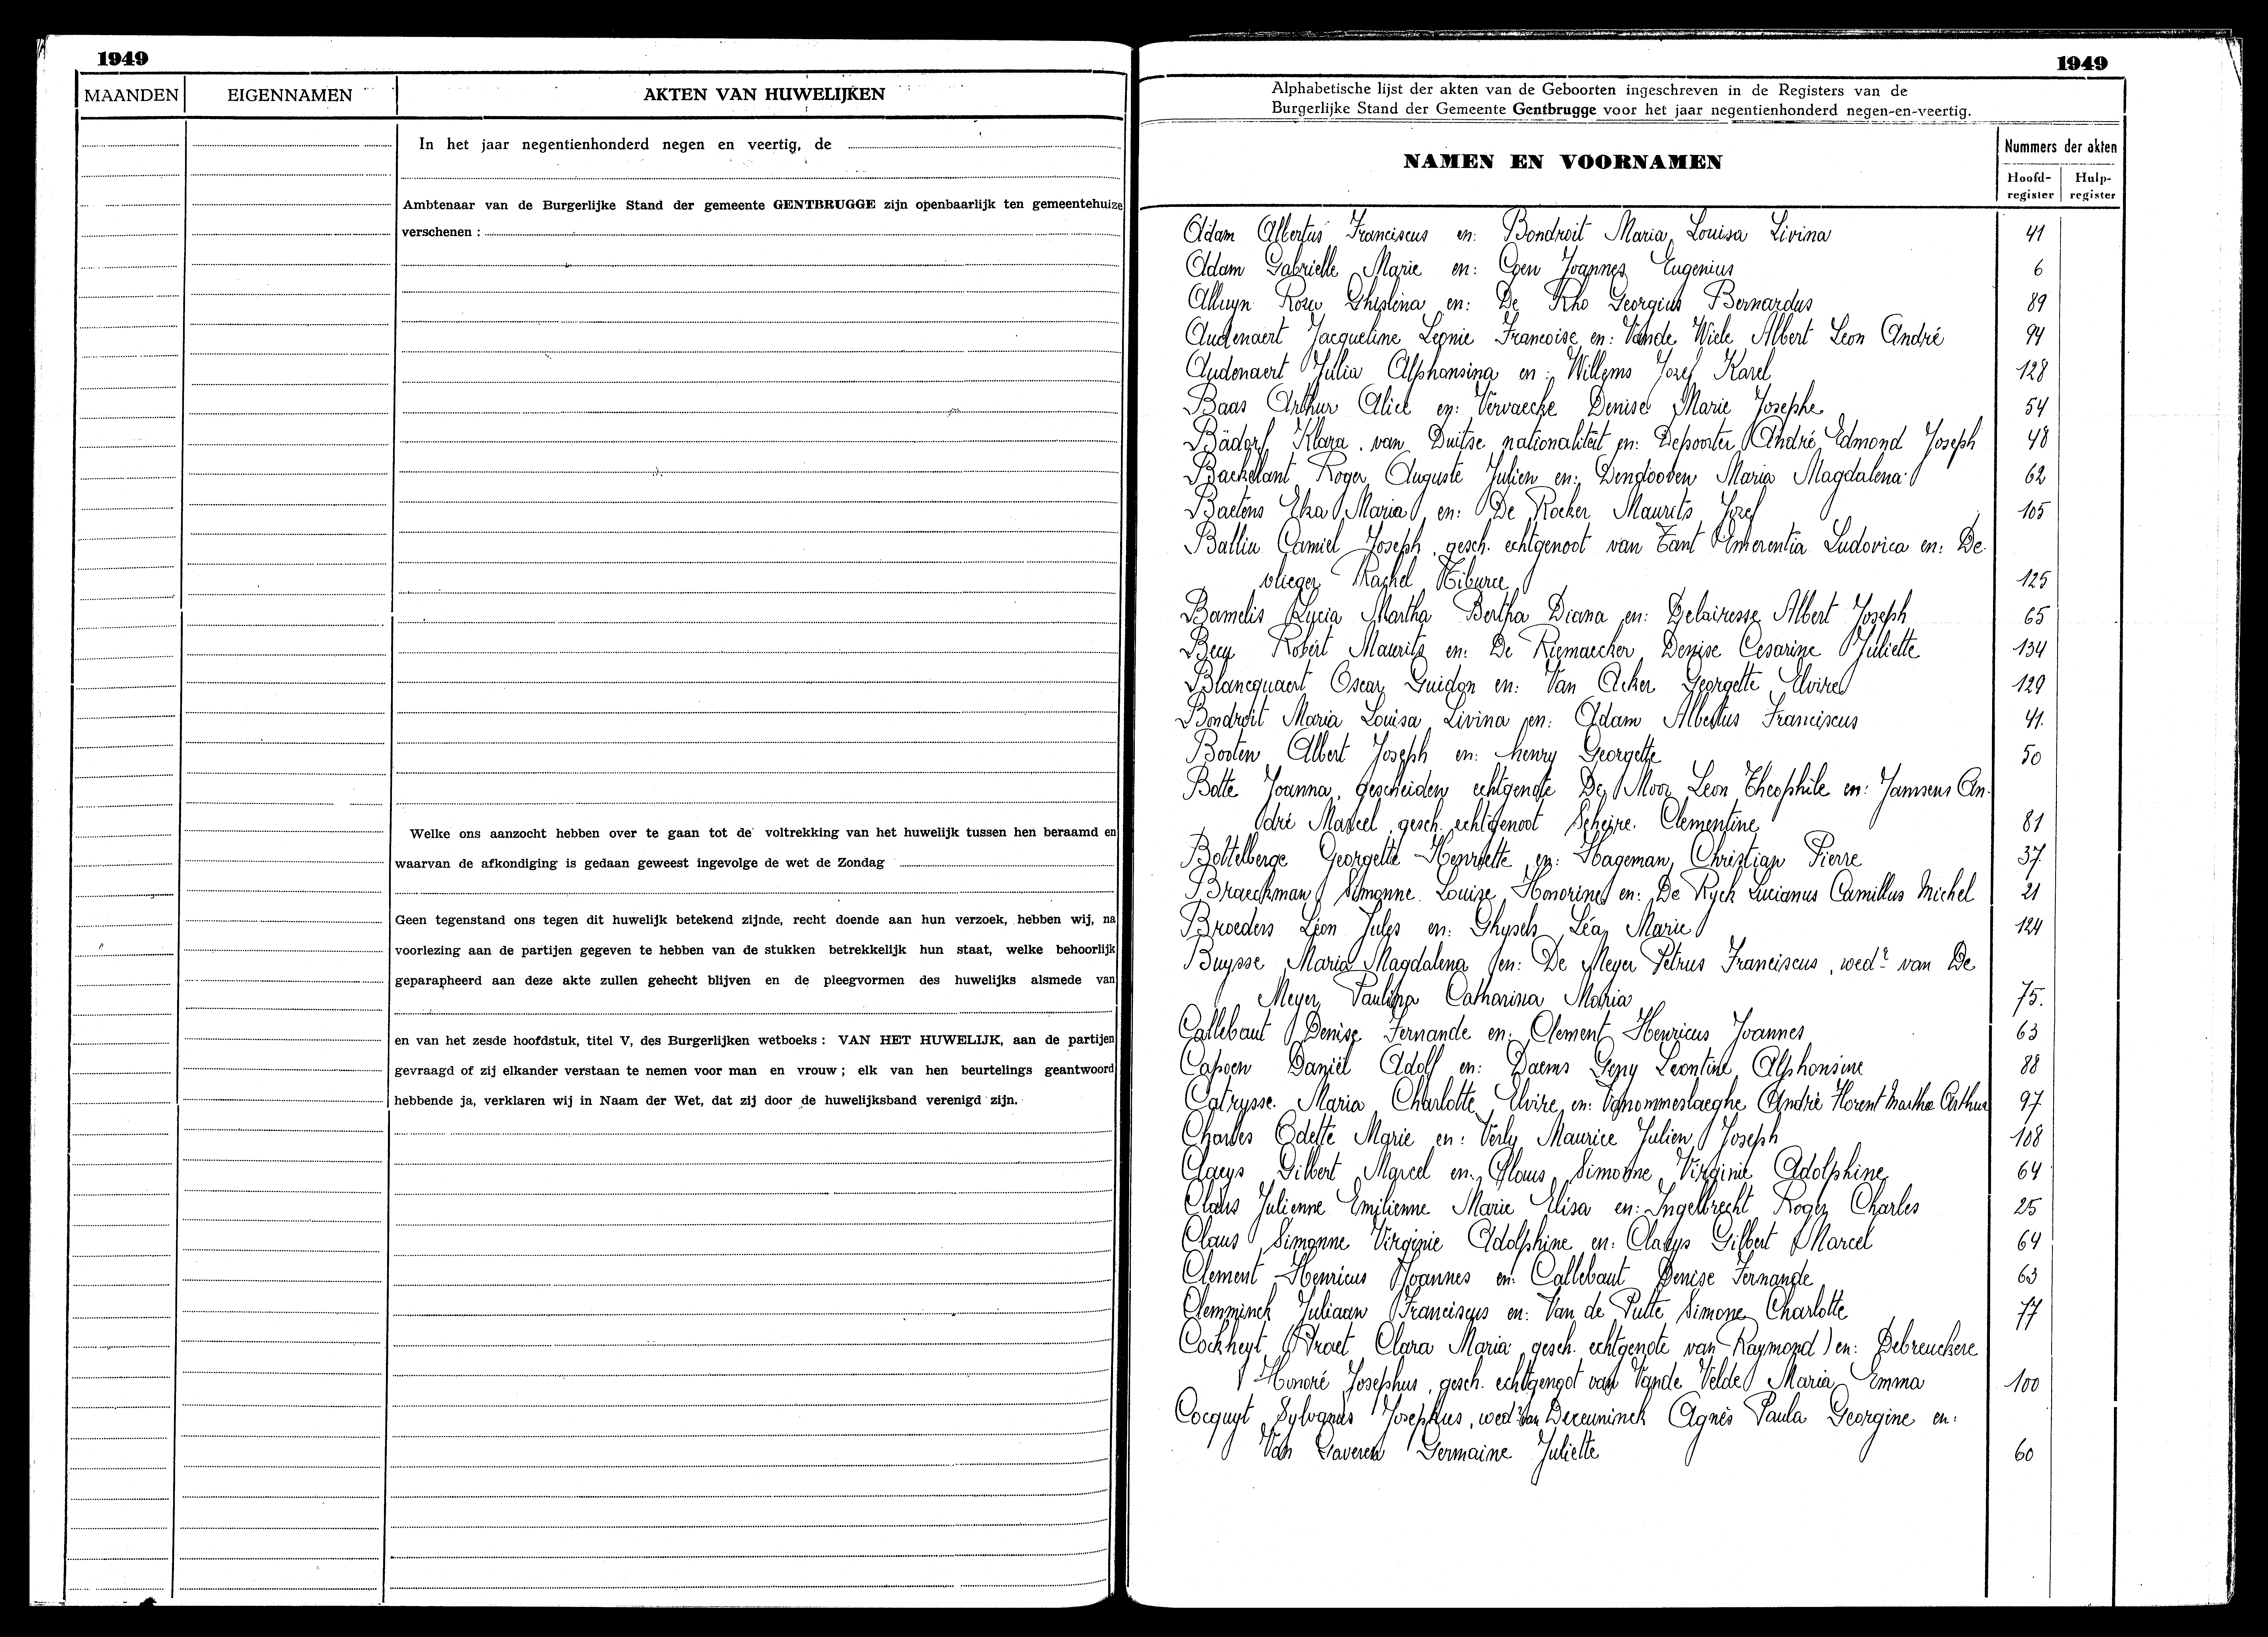 1949
MAANDEN EIGENNAMEN AKTEN VAN HUWELIJKEN
In het jaar negentienhonderd negen en veertig, de
Ambtenaar van de Burgerlijke Stand der gemeente GENTBRUGGE zijn openbaarlijk ten gemeentehuize
verschenen :
Welke ons aanzocht hebben over te gaan tot de voltrekking van het huwelijk tussen hen beraamd en
waarvan de afkondiging is gedaan geweest ingevolge de wet de Zondag
Geen tegenstand ons tegen dit huwelijk betekend zijnde, recht doende aan hun verzoek, hebben wij, na
voorlezing aan de partijen gegeven te hebben van de stukken betrekkelijk hun staat, welke behoorlijk
geparapheerd aan deze akte zullen gehecht blijven en de pleegvormen des huwelijks alsmede van
en van het zesde hoofdstuk, titel V, des Burgerlijken wetboeks : VAN HET HUWELIJK, aan de partijen
gevraagd of zij elkander verstaan te nemen voor man en vrouw ; elk van hen beurtelings geantwoord
hebbende ja, verklaren wij in Naam der Wet, dat zij door de huwelijksband verenigd zijn.
1949
Alphabetische lijst der akten van de Geboorten ingeschreven in de Registers van de
Burgerlijke Stand der Gemeente Gentbrugge voor het jaar negentienhonderd negen-en-veertig.
NAMEN EN VOORNAMEN
Nummers der akten
Hoofd-register Hulp-register
Adam Albertus Franciscus en: Bondroit Maria Louisa Livina 41
Adam Gabrielle Marie en: Coen Joannes Eugenius 6
Alluyn Rosa Ghislina en: De Rho Georgius Bernardus 89
Audenaert Jacqueline Leonie Francoise en: Vande Wiele Albert Leon André 94
Audenaert Julia Alphonsina en: Willems Jozef Karel 128
Baas Arthur Alice en: Vervaecke Denise Marie Josephe 54
Bädorf Klara, van Duitse nationaliteit en: Depoorter André Edmond Joseph 48
Baekelant Roger Auguste Julien en: Dendooven Maria Magdalena 62
Baetens Elza Maria en: De Rocker Maurits Jozef 105
Balliu Camiel Joseph, gesch. echtgenoot van Tant Emerentia Ludovica en: De-
vlieger Rachel Tiburce 125
Bamelis Lycia Martha Bertha Diana en: Delairesse Albert Joseph 65
Becq Robert Maurits en: De Riemaecker Denise Cesarine Juliette 134
Blancquaert Oscar Guidon en: Van Acker Georgette Elvire 129
Bondroit Maria Louisa Livina en: Adam Albertus Franciscus 41.
Booten Albert Joseph en: henry Georgette 50
Botte Joanna, gescheiden echtgenote De Moor Leon Theophile en: Janssens An-
dré Marcel gesch. echtgenoot Scheire Clementine 81
Bottelberge Georgette Henriette en: Hageman Christian Pierre 37
Braeckman Simonne Louise Honorine en: De Ryck Lucianus Camillus Michel 21
Broeders Léon Jules en: Ghysels Léa Marie 124
Buysse Maria Magdalena en: De Meyer Petrus Franciscus, wedr van De
Meyer Paulina Catharina Maria 75.
Callebaut Denise Fernande en: Clement Henricus Joannes 63
Capoen Daniël Adolf en: Daems Geny Leontine Alphonsine 88
Catrysse Maria Charlotte Elvire en: Vanommeslaeghe André Florent Martha Arthur 97
Charles Odette Marie en: Verly Maurice Julien Joseph 108
Claeys Gilbert Marcel en: Claus Simonne Virginie Adolphine 64
Claus Julienne Emilienne Marie Elisa en: Ingelbrecht Roger Charles 25
Claus Simonne Virginie Adolphine en: Claeys Gilbert Marcel 64
Clement Henricus Joannes en: Callebaut Denise Fernande 63
Clemminck Juliaan Franciscus en: Van de Putte Simone Charlotte 77
Cockheyt (Praet Clara Maria gesch. echtgenote van Raymond) en: Debreuckere
Honoré Josephus, gesch. echtgenoot van Vande Velde Maria Emma 100
Cocquyt Sylvanus Josephus, wedr van Deceuninck Agnès Paula Georgine en:
Van Gaveren Germaine Juliette 60